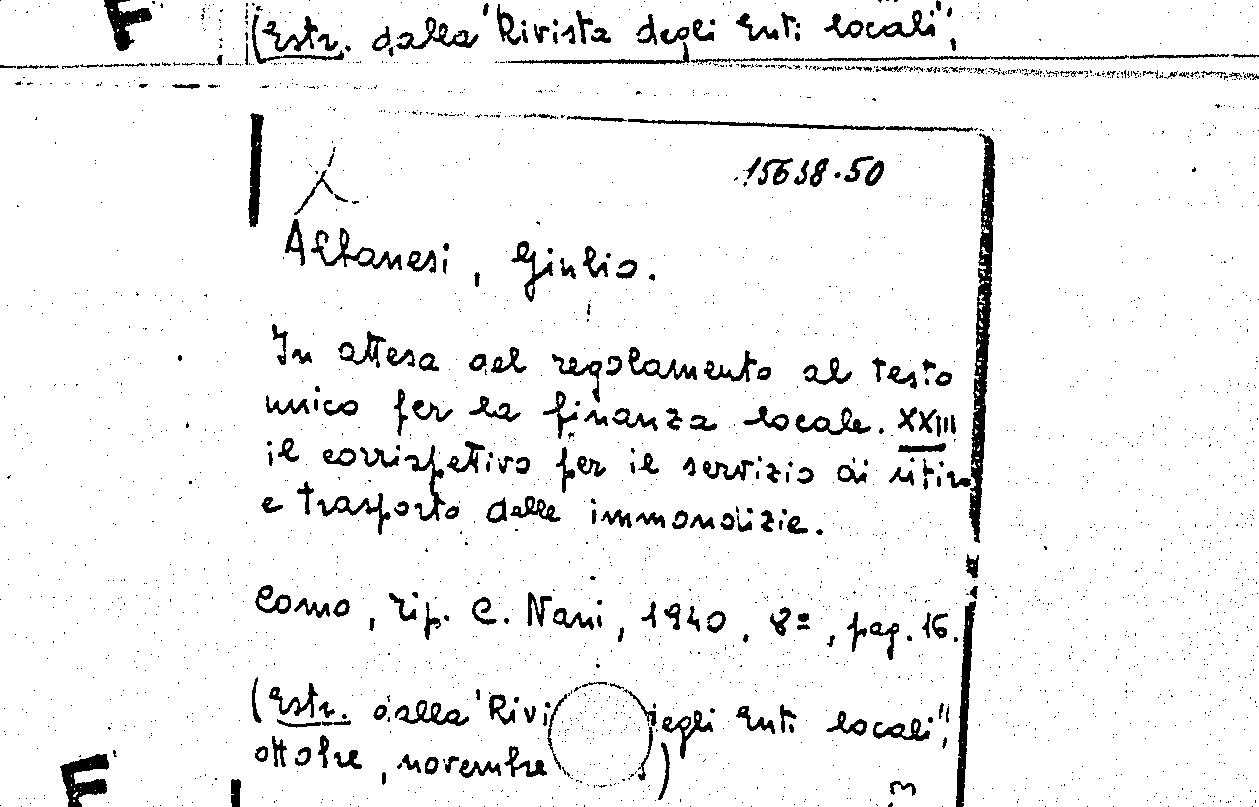 F
(Estr. dalla "Rivista degli Enti locali",
15638.50
Albanesi, Giulio.
In attesa del regolamento al testo
unico per la finanza locale. XXIII
il corrispettivo per il servizio di ritiro
e trasporto delle immondizie.
Como, Tip. C. Nani, 1940, 8º, pag. 16.
(Estr. dalla "Rivi degli Enti locali",
ottobre, novembre )
F